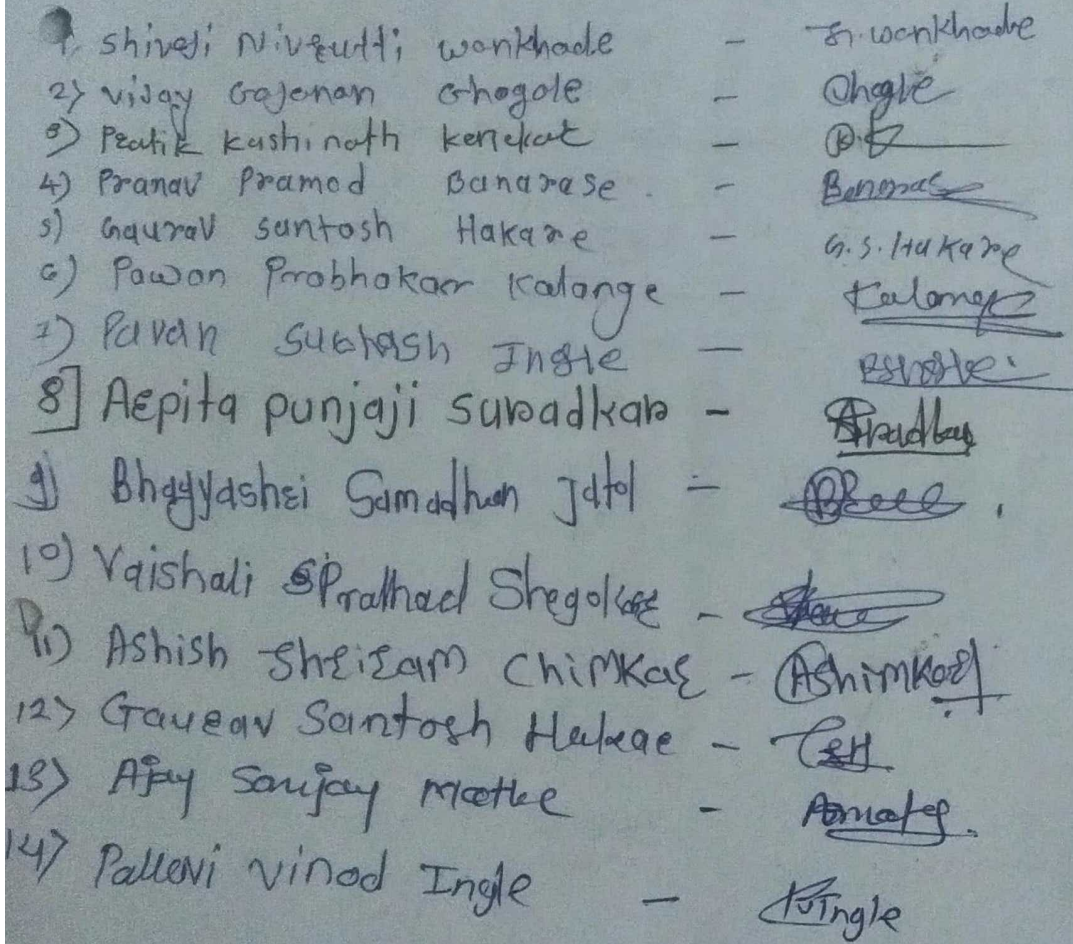 1) Shivaji Nivrutti wankhade - S. wankhade
2) Vijay Gajanan Ghogale -
3) Pratik Kashinath Kenekar -
4) Pranav Pramod Banarase - Banarase
5) Gaurav santosh Hakare - G.S. Hakare
6) Pawan Prabhakar Kalange - Kalange
7) Pavan Subhash Ingle -
8] Arpita punjaji suradkar -
9) Bhagyashri Samadhan -
10) Vaishali Pralhad Shegokar -
11) Ashish Shriram Chimkar - AShimkar
12) Gaurav Santosh Hakare -
13) Ajay Sanjay -
14) Pallavi vinod Ingle - Ingle